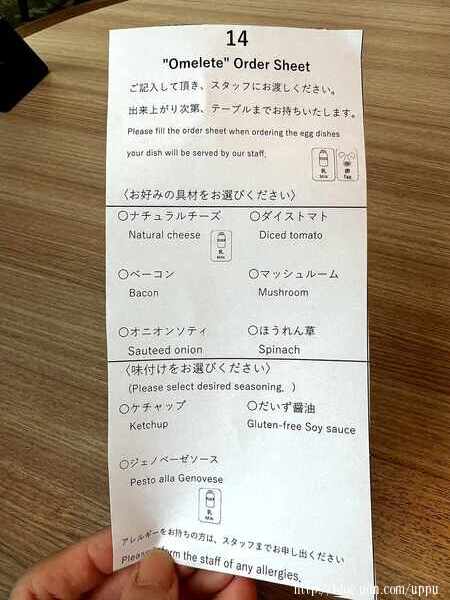 14
"Omelete" Order Sheet
ご記入して頂き、スタッフにお渡しください。
出来上がり次第、テーブルまでお持ちいたします。
Please fill the order sheet when ordering the egg dishes
your dish will be served by our staff.
乳 卵
Milk Egg
〈お好みの具材をお選びください〉
○ナチュラルチーズ ○ダイストマト
Natural cheese Diced tomato
乳
Milk
○ベーコン ○マッシュルーム
Bacon Mushroom
○オニオンソティ ○ほうれん草
Sauteed onion Spinach
〈味付けをお選びください〉
(Please select desired seasoning. )
○ケチャップ ○だいず醤油
Ketchup Gluten-free Soy sauce
○ジェノベーゼソース
Pesto alla Genovese
乳
Milk
アレルギーをお持ちの方は、スタッフまでお申し出ください
the staff of any allergies.
http://blog.udn.com/uppu